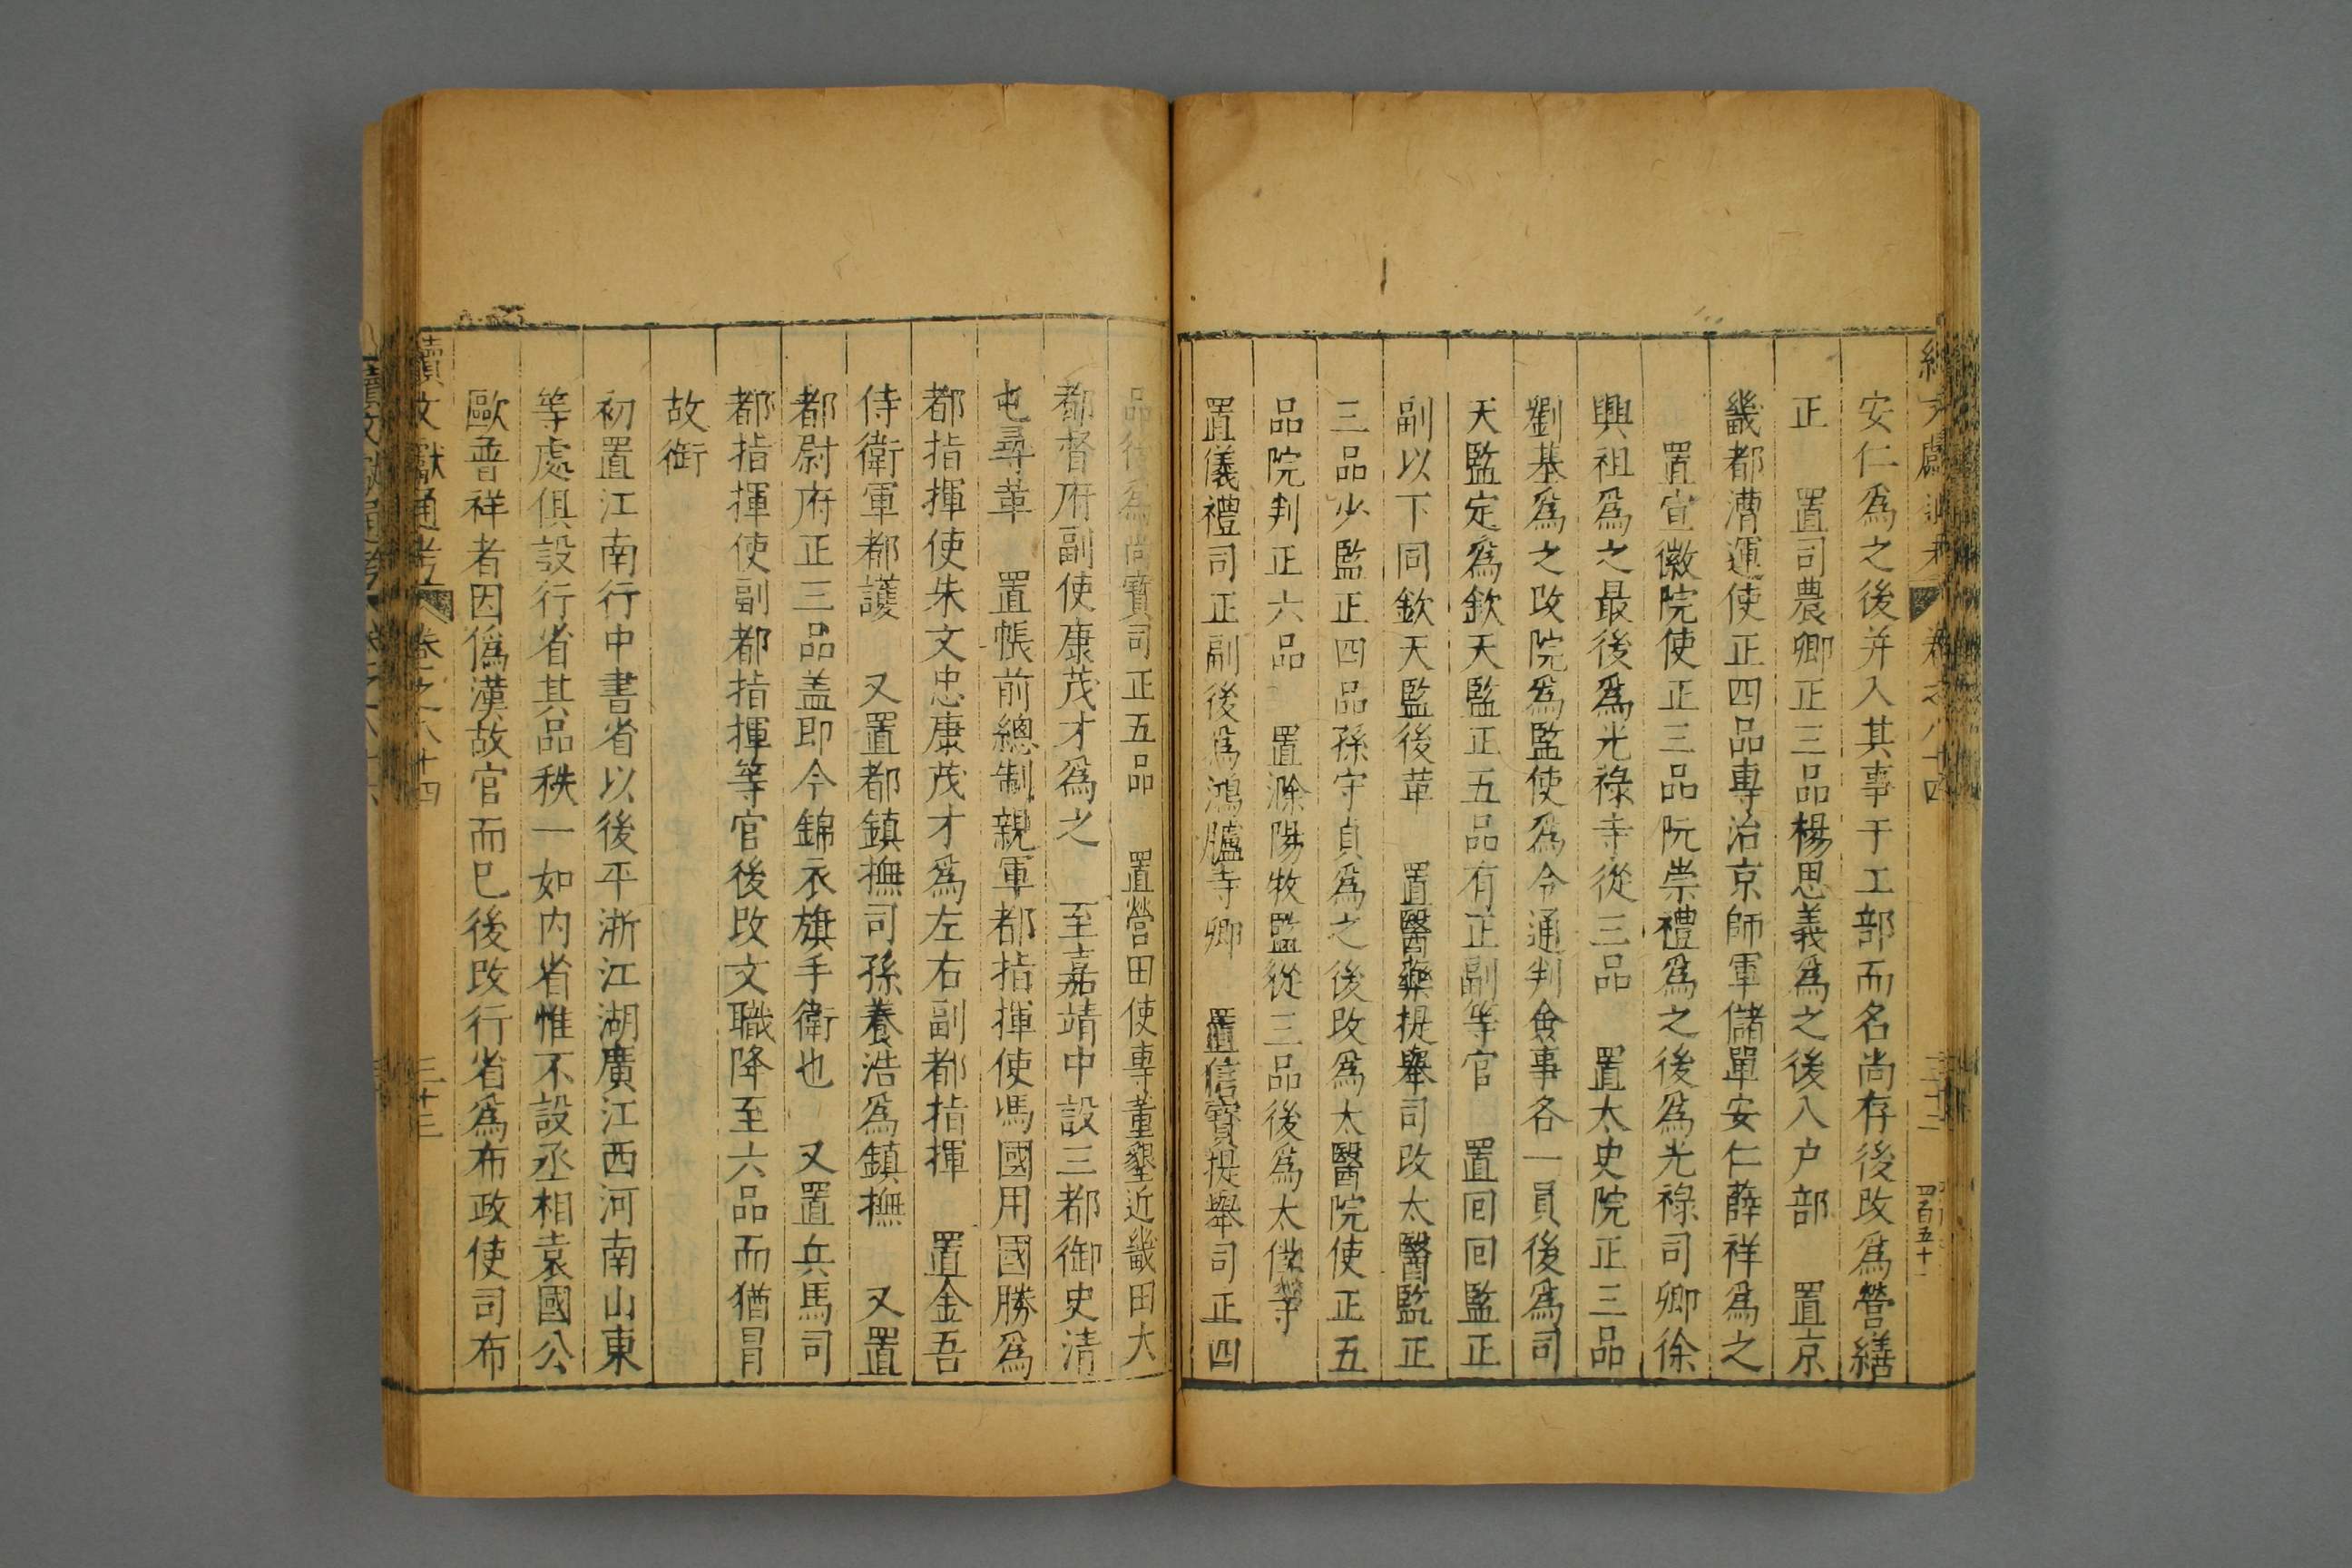 續文獻通考 卷之八十四 三十二 四百五十一
安仁爲之後并入其事于工部而名尚存後改爲營繕
正 置司農卿正三品楊思義爲之後入户部 置京
畿都漕運使正四品專治京師軍儲單安仁薛祥爲之
置宣徽院使正三品阮崇禮爲之後爲光祿司卿徐
興祖爲之最後爲光祿寺從三品 置太史院正三品
劉基爲之改院爲監使爲令通判僉事各一員後爲司
天監定爲欽天監正五品有正副等官 置回回監正
副以下同欽天監後革 置醫藥提舉司改太醫監正
三品少監正四品孫守貞爲之後改爲太醫院使正五
品院判正六品 置滁陽牧監從三品後爲太僕寺
置儀禮司正副後爲鴻臚寺卿 置信寳提舉司正四
品後爲尚寳司正五品 置營田使專董墾近畿田大
都督府副使康茂才爲之 至嘉靖中設三都御史清
屯尋革 置帳前總制親軍都指揮使馮國用國勝爲
都指揮使朱文忠康茂才爲左右副都指揮 置金吾
侍衛軍都護 又置都鎮撫司孫養浩爲鎮撫 又置
都尉府正三品盖即今錦衣旗手衛也 又置兵馬司
都指揮使副都指揮等官後改文職降至六品而猶冒
故銜
初置江南行中書省以後平浙江湖廣江西河南山東
等處俱設行省其品秩一如内省惟不設丞相袁國公
歐普祥者因僞漢故官而已後改行省爲布政使司布
續文獻通考 卷之八十四 三十三